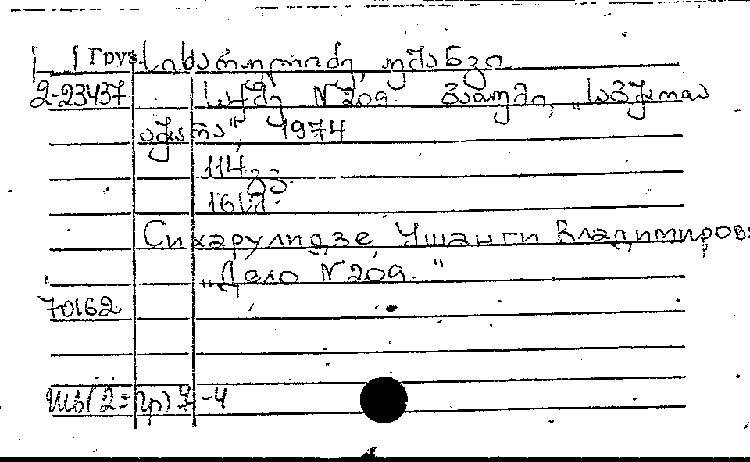 Груз სიხარულიძე, უშანგი
2-23437 საქმე N209. ბათუმი, „საბჭოთა
აჭარა", 1974
114 გვ.
16
Сихарулидзе, Ушанги Владимиров
„Дело N209."
70162
Ш6(2=Гр)7-4